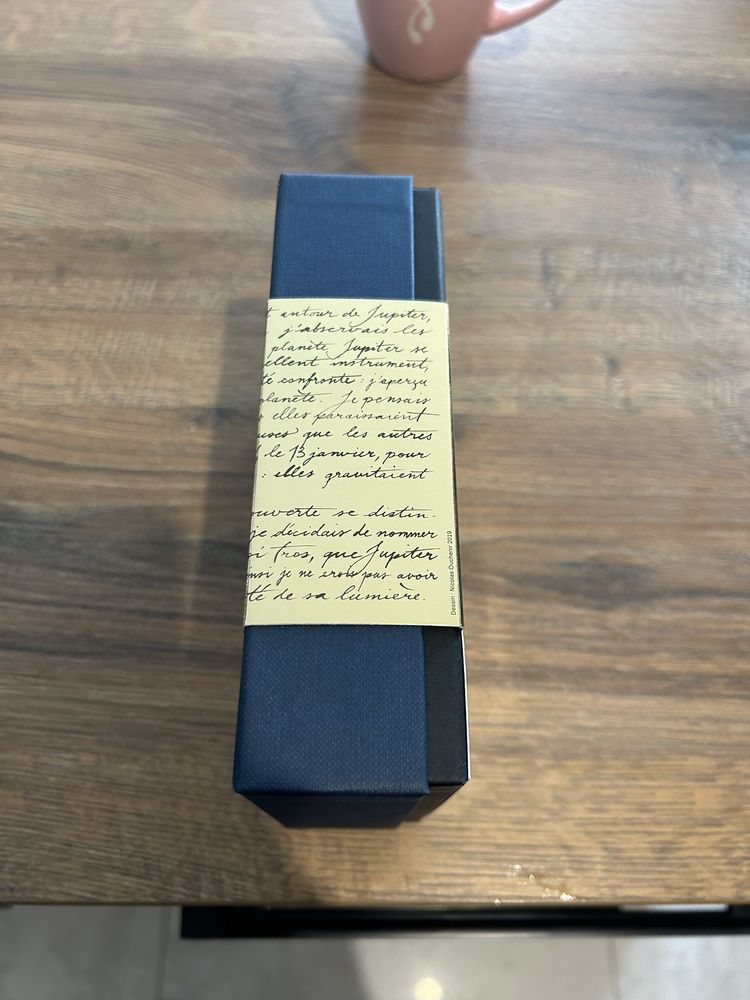 t autour de Jupiter,
j'observais les
planète Jupiter se
ellent instrument,
té confronte : j'aperçu
planète. Je pensais
elles paraissaient
uses que les autres
le 13 janvier, pour
: elles gravitaient
ouverte se distin-
je décidais de nommer
si Tros, que Jupiter
nsi je ne crois pas avoir
té de sa lumière.
Dessin : Nicolas Ouchenir 2019